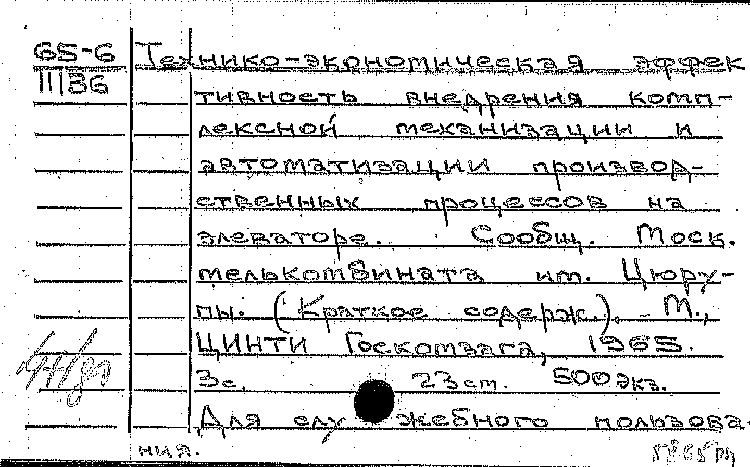 65-6 Технико-экономическая эффек
III/36
тивность внедрения комп-
лексной механизации и
автоматизации производ-
ственных процессов на
элеваторе. Сообщ. Моск.
мелькомбината им. Цюру-
пы. (Краткое содерж.). М.,
ЦИНТИ Госкомзага, 1965.
3с. 23 см. 500 экз.
Для служебного пользова-
ния.